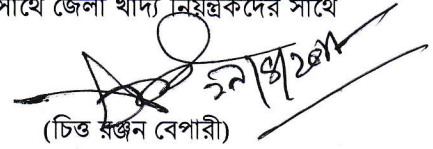 সাথে জেলা খাদ্য নিয়ন্ত্রকদের সাথে
(চিত্ত রঞ্জন বেপারী)